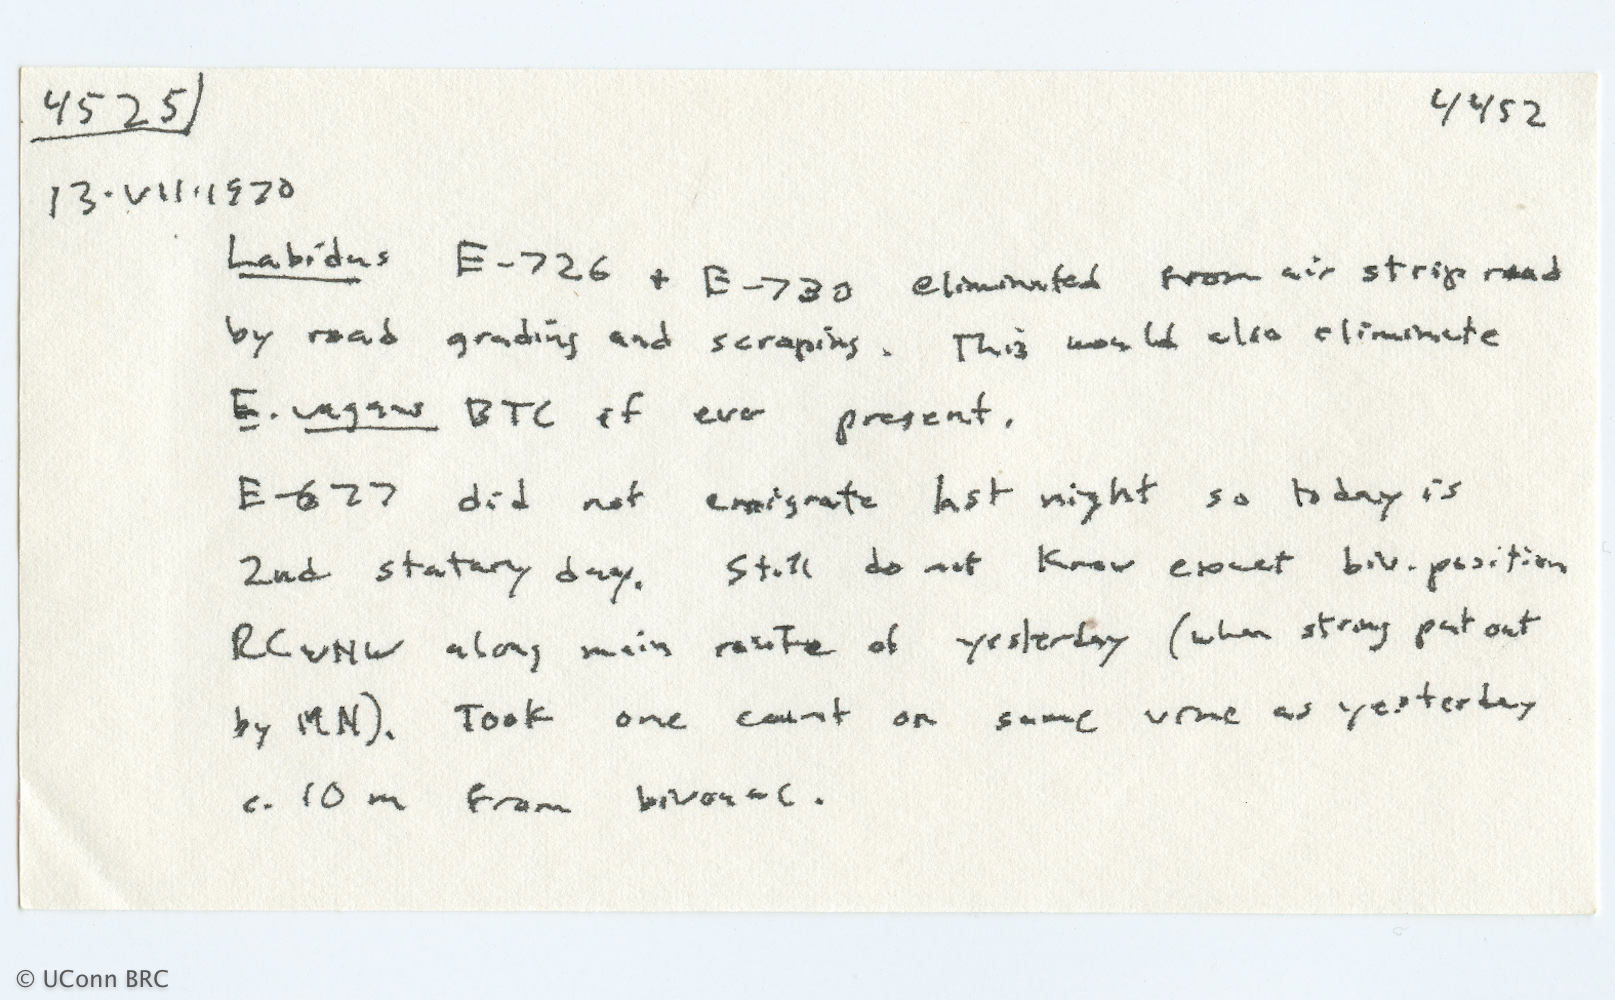 4525 4452
13.VII.1970
Labidus E-726 + E-730 eliminated from air strip road
by road grading and scraping. This would also eliminate
E. vagans BTC if ever present.
E-677 did not emigrate last night so today is
2nd statary day. Still do not know exact biv. position
RC along main route of yesterday (when string put out
by MN). Took one count on same vine as yesterday
c. 10 m from bivouac.
© UConn BRC